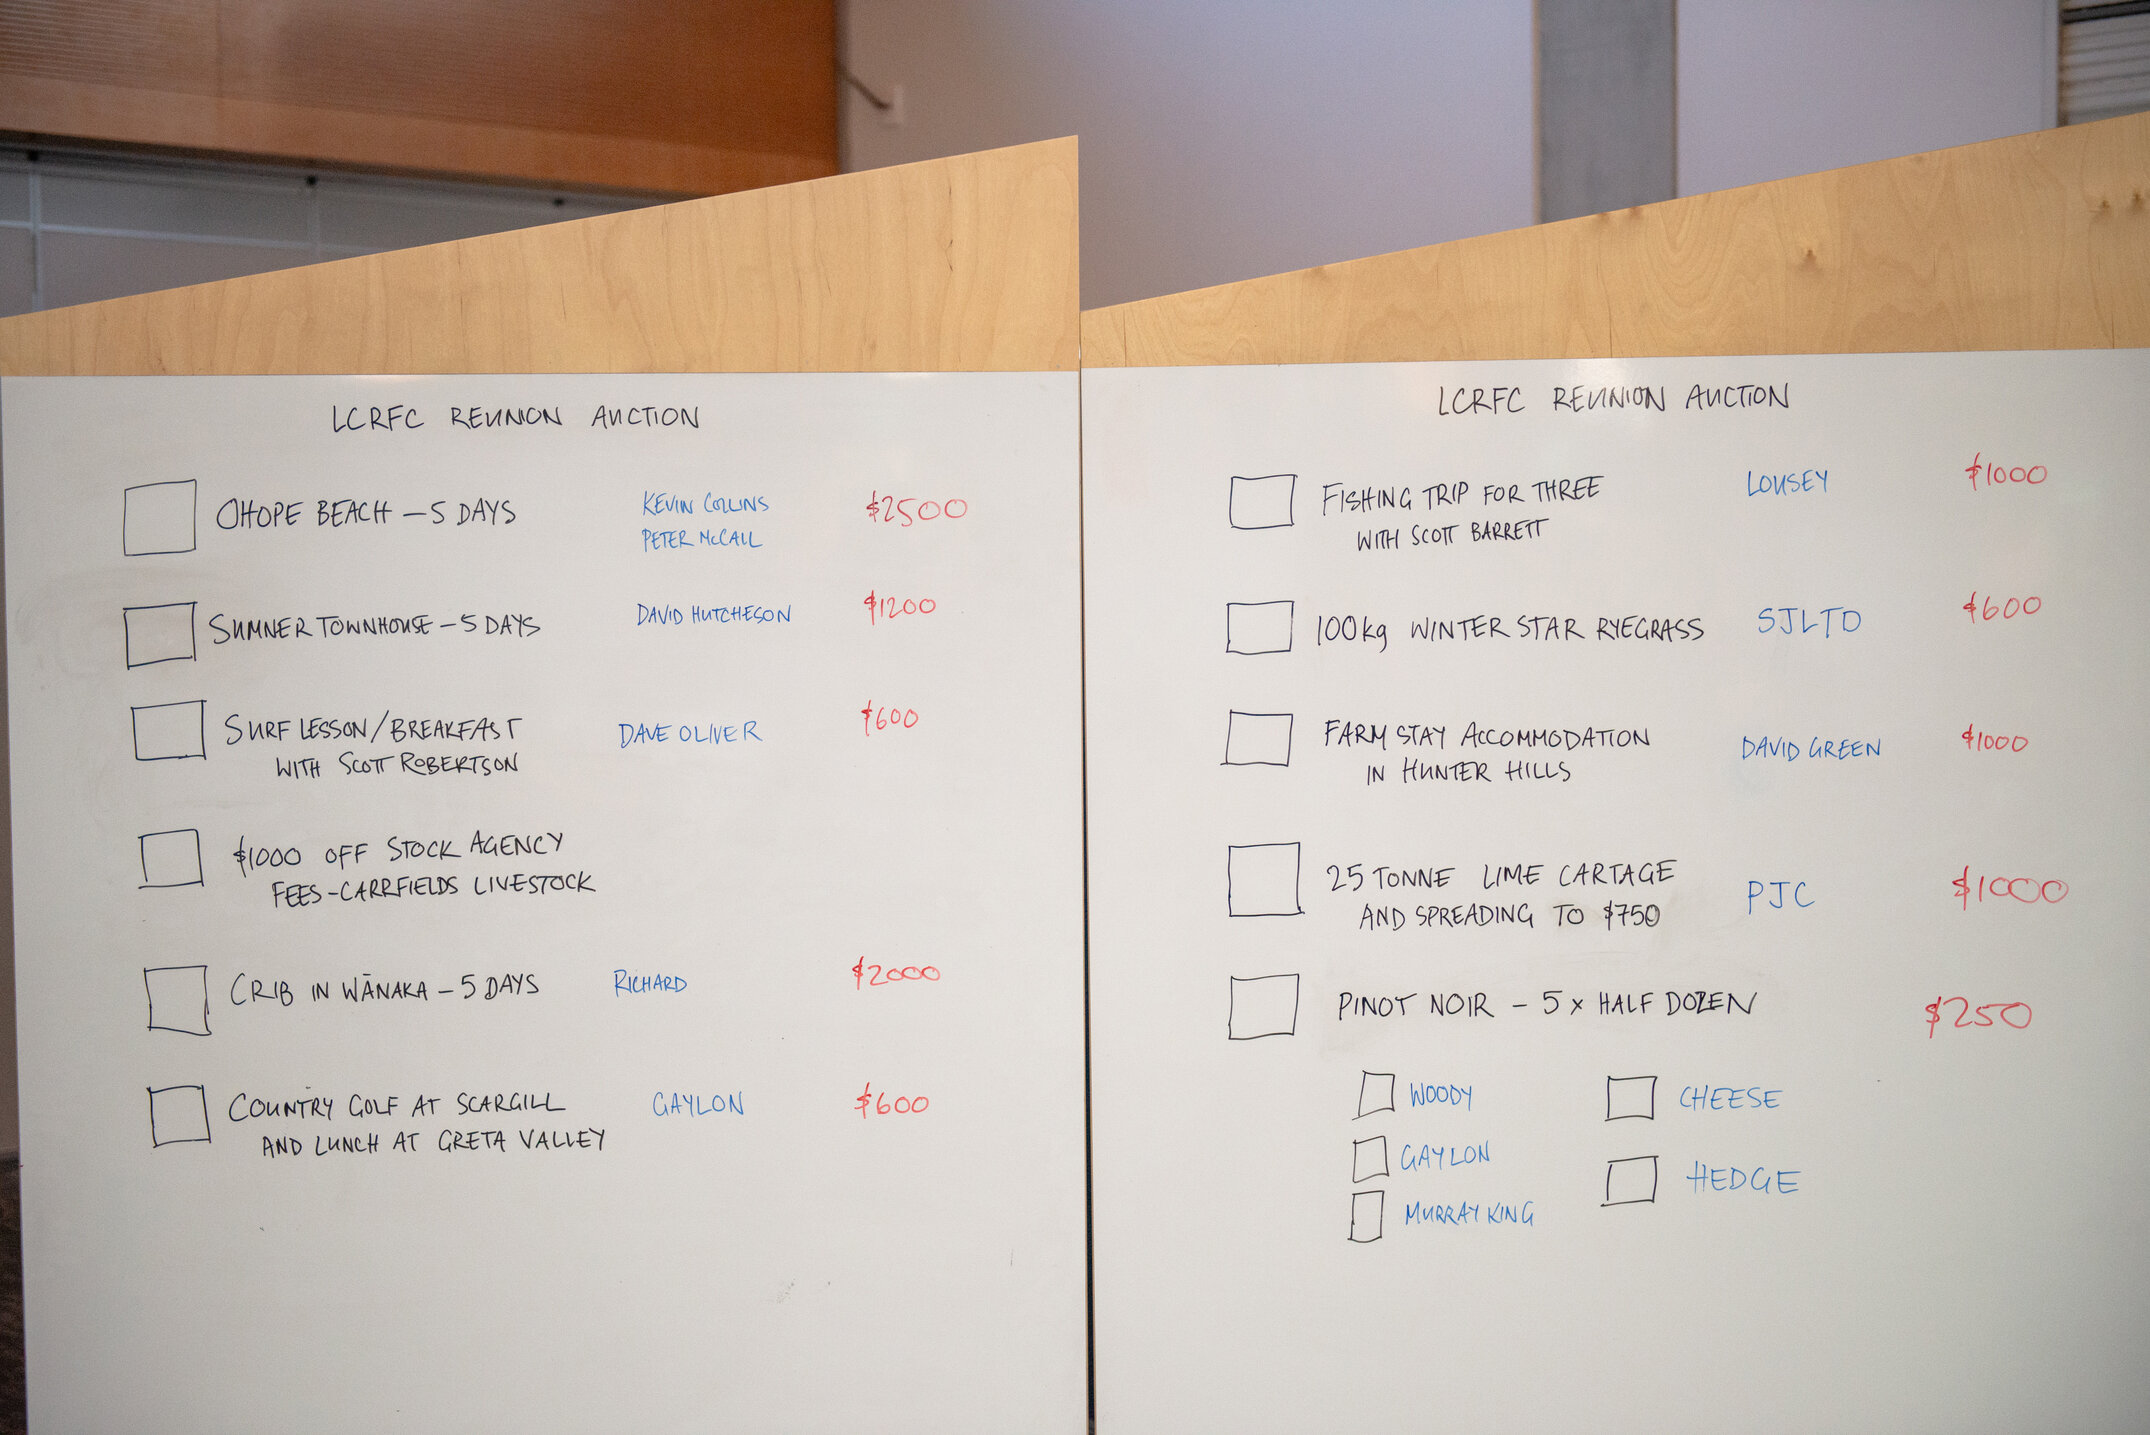 LCRFC REUNION AUCTION
OHOPE BEACH - 5 DAYS KEVIN COLLINS $2500
PETER McCALL
SUMNER TOWNHOUSE - 5 DAYS DAVID HUTCHESON $1200
SURF LESSON/BREAKFAST DAVE OLIVER $600
WITH SCOTT ROBERTSON
$1000 OFF STOCK AGENCY
FEES - CARRFIELDS LIVESTOCK
CRIB IN WĀNAKA - 5 DAYS RICHARD $2000
COUNTRY GOLF AT SCARGILL GAYLON $600
AND LUNCH AT GRETA VALLEY
LCRFC REUNION AUCTION
FISHING TRIP FOR THREE LOUSEY $1000
WITH SCOTT BARRETT
100kg WINTER STAR RYEGRASS SJLTD $600
FARM STAY ACCOMMODATION DAVID GREEN $1000
IN HUNTER HILLS
25 TONNE LIME CARTAGE PJC $1000
AND SPREADING TO $750
PINOT NOIR - 5 x HALF DOZEN $250
WOODY CHEESE
GAYLON HEDGE
MURRAY KING